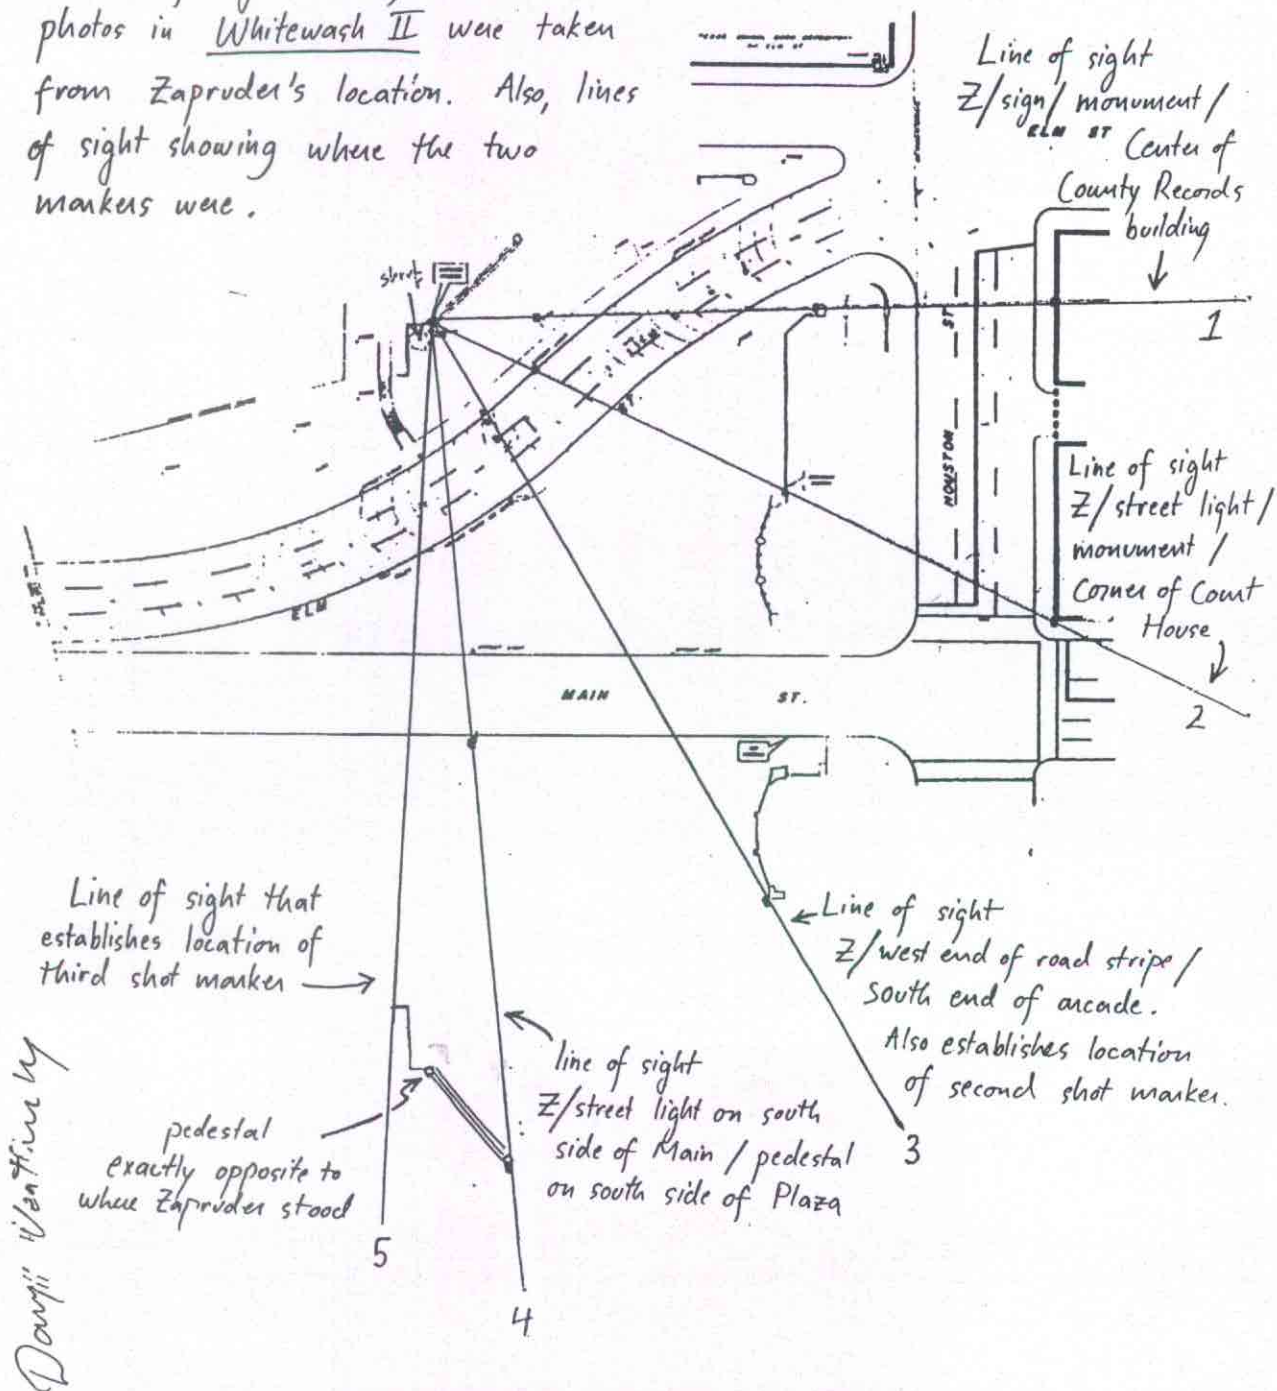 photos in Whitewash II were taken
from Zapruder's location. Also, lines
of sight showing where the two
markers were.
Line of sight
Z/sign/monument/
ELM ST
Center of
County Records
building
1
HOUSTON ST
Line of sight
Z/street light/
monument/
Corner of Court
House
2
ELM
MAIN ST.
Line of sight that
establishes location of
third shot marker
Line of sight
Z/west end of road stripe/
south end of arcade.
Also establishes location
of second shot marker.
3
line of sight
Z/street light on south
side of Main / pedestal
on south side of Plaza
4
pedestal
exactly opposite to
where Zapruder stood
5